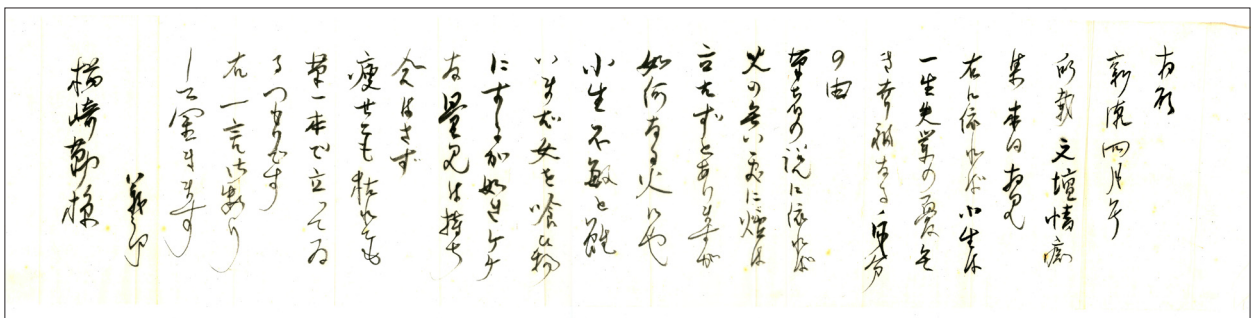 新潮四月号
所載 文壇情痴
集 本日
右に依れば小生は
一生失業の憂無
き
の由
筆者の説に依れば
火の無い所に煙は
立たずとありますが
如何なる火にや
小生不敏と雖
いまだ女を喰ひ物
にするが如きケチ
な量見は持ち
合はさず
痩せても枯れても
筆一本で立つてゐ
るつもりです
右一言御断り
して置きます
楢崎勤様